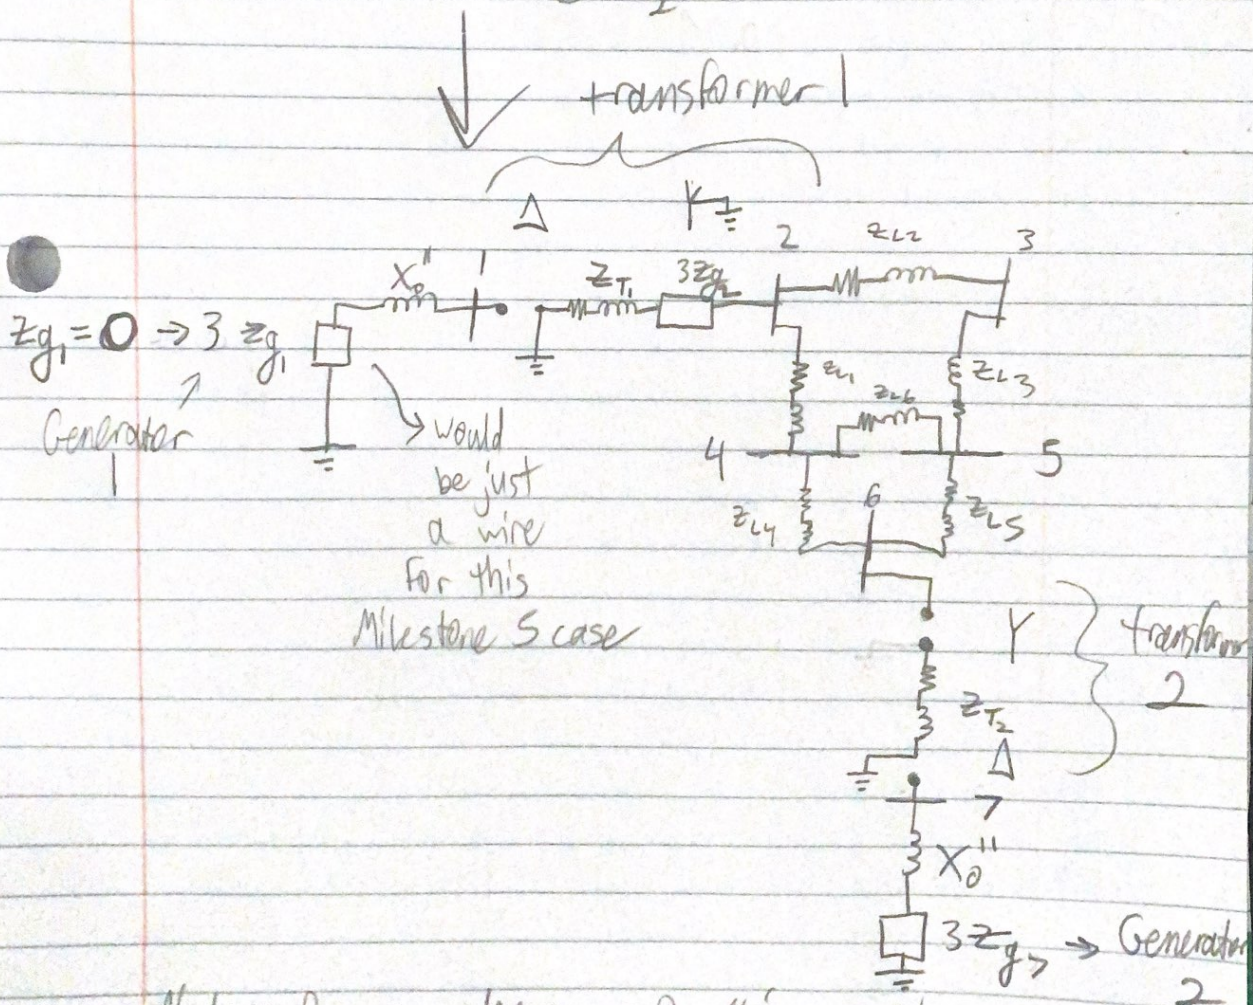 transformer 1
Δ
Y
2
Z_L2
3
X_0''
1
Z_T1
3Zg_2
Zg_1 = 0 → 3 Zg_1
Z_L1
Z_L3
Z_L6
Generator
1
would
be just
a wire
for this
Milestone 5 case
4
5
6
Z_L4
Z_L5
Y
transformer
2
Z_T2
Δ
7
X_0''
3Zg_7 → Generator
2